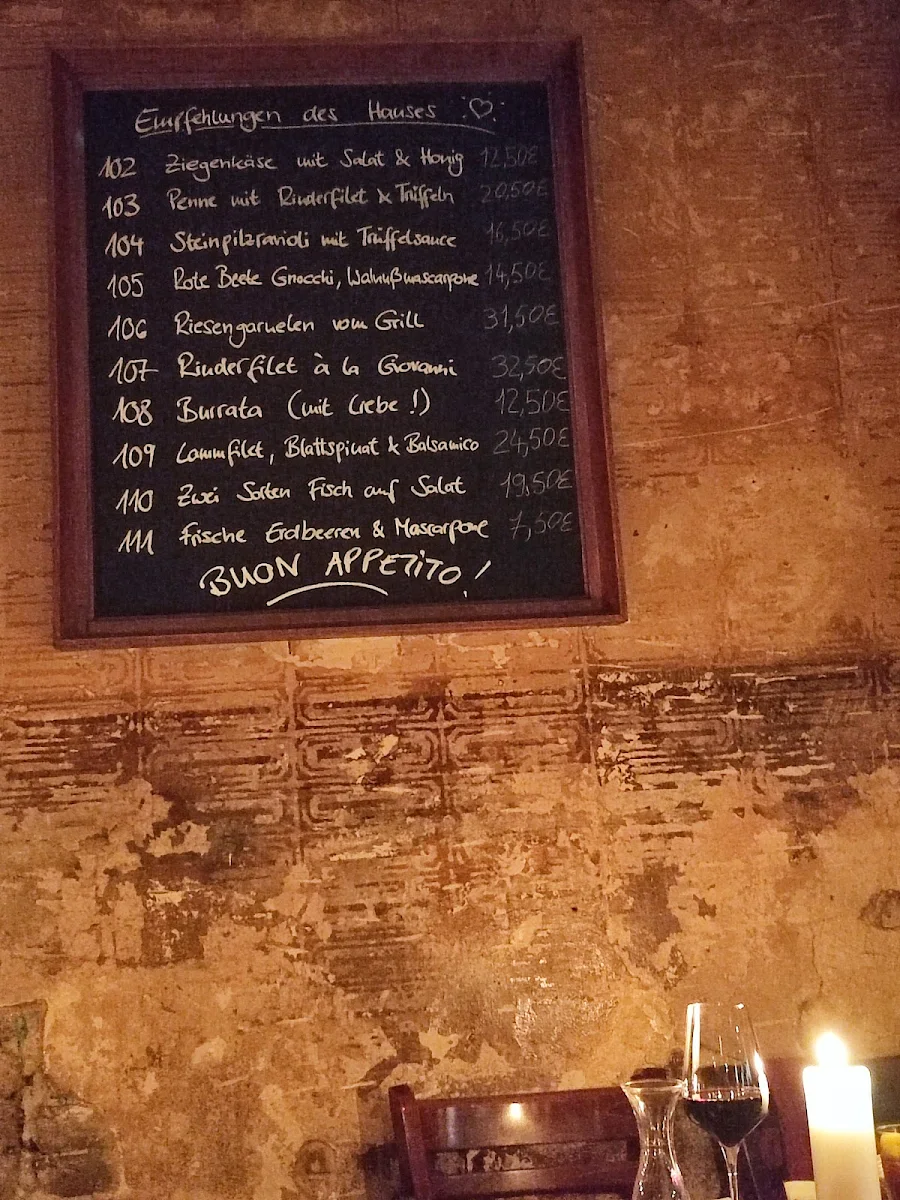 Empfehlungen des Hauses
102 Ziegenkäse mit Salat & Honig 12,50€
103 Penne mit Rinderfilet & Trüffeln 20,50€
104 Steinpilzravioli mit Trüffelsauce 16,50€
105 Rote Beete Gnocchi, Walnußmascarpone 14,50€
106 Riesengarnelen vom Grill 31,50€
107 Rinderfilet à la Giovanni 32,50€
108 Burrata (mit Liebe!) 12,50€
109 Lammfilet, Blattspinat & Balsamico 24,50€
110 Zwei Sorten Fisch auf Salat 19,50€
111 Frische Erdbeeren & Mascarpone 7,50€
BUON APPETITO!